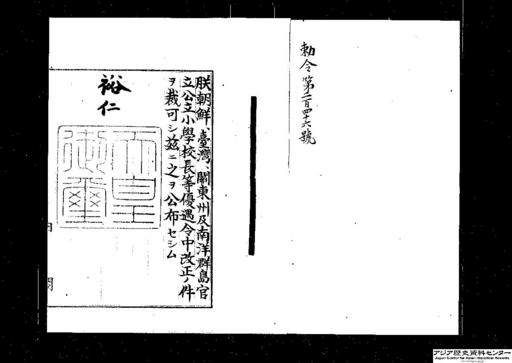 勅令第二百四十六號
朕朝鮮、臺灣、關東州及南洋群島官
立公立小學校長等優遇令中改正ノ件
ヲ裁可シ玆ニ之ヲ公布セシム
裕仁
天皇
御璽
内閣
アジア歴史資料センター
Japan Center for Asian Historical Records